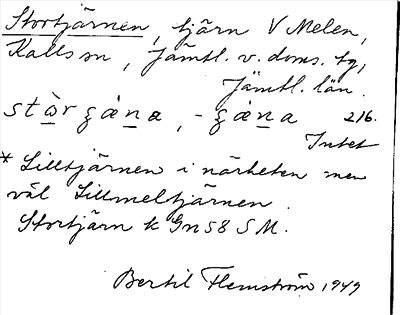 Stortjärnen, tjärn V Melen,
Kalls sn, Jämtl. v. doms. tg,
Jämtl. län.
stòr ǥána, -ǥána 216.
Intet
* Lilltjärnen i närheten men
väl Lillmeltjärnen.
Stortjärn k Gn 58 S M.
Bertil Flemström 1949